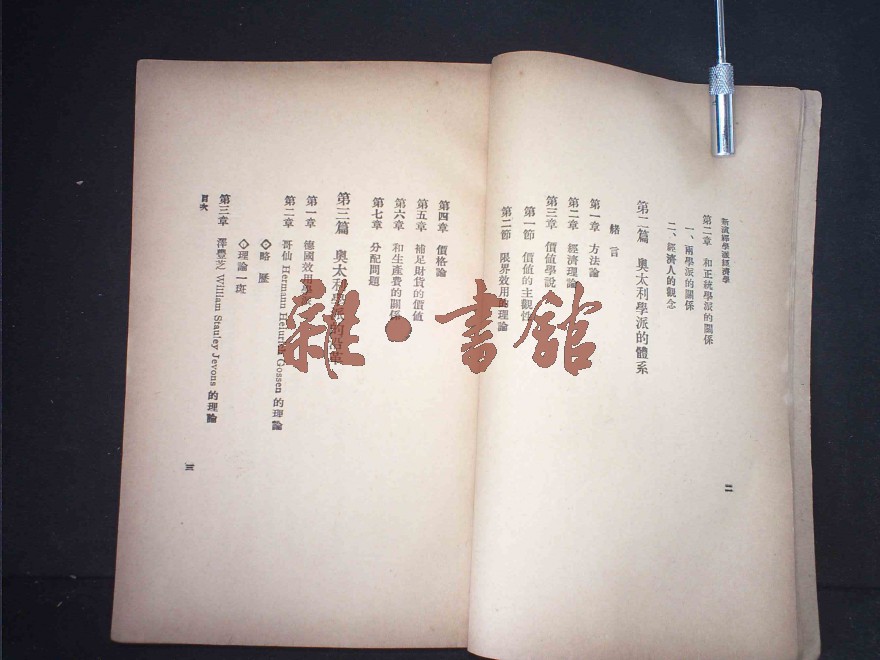 新演繹學派經濟學
第二章 和正統學派的關係
一、兩學派的關係
二、經濟人的觀念
第二篇 奧太利學派的體系
緒言
第一章 方法論
第二章 經濟理論
第三章 價值學說
第一節 價值的主觀性
第二節 限界效用的理論
二
第四章 價格論
第五章 補足財貨的價值
第六章 和生產費的關係
第七章 分配問題
第三篇 奧太利學派的沿革
第一章 德國效用學
第二章 哥仙 Hermann Heinrich Gossen 的理論
◇略歷
◇理論一斑
第三章 澤豐芝 William Stanley Jevons 的理論
目次
三
雜·書館